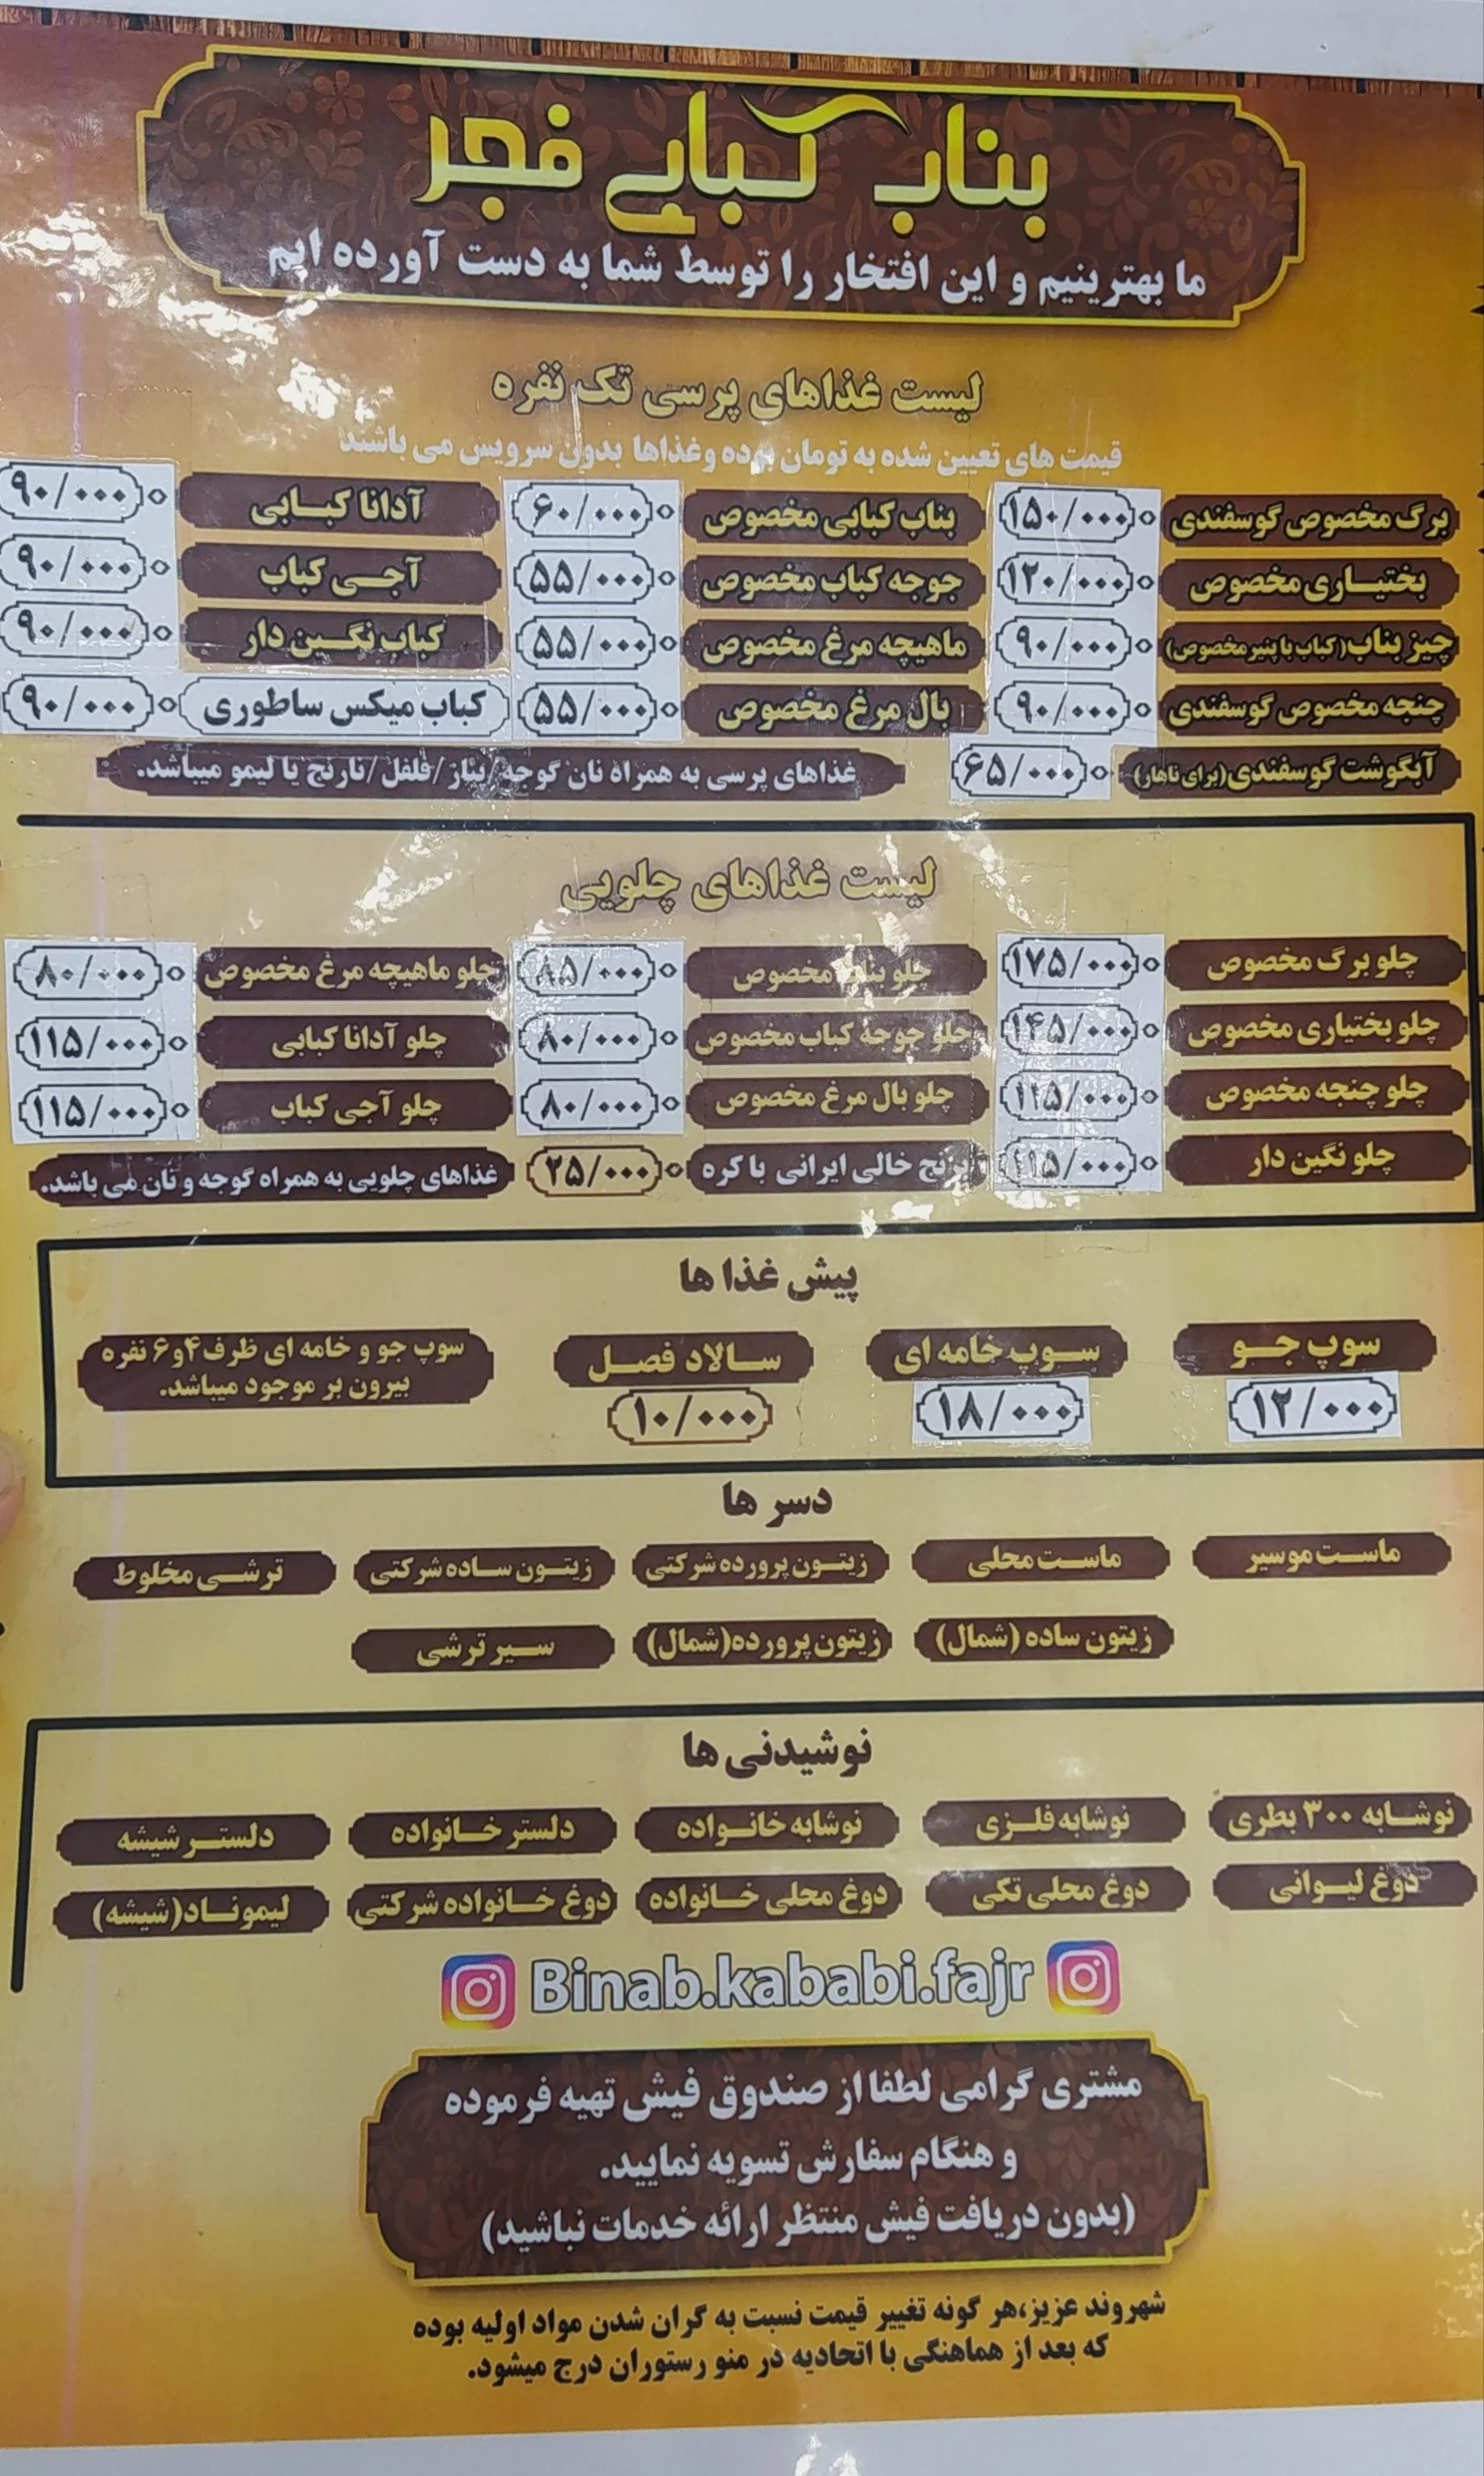 بناب کبابی فجر
ما بهترینیم و این افتخار را توسط شما به دست آورده ایم
لیست غذاهای پرسی تک نفره
قیمت های تعیین شده به تومان بوده وغذاها بدون سرویس می باشند
برگ مخصوص گوسفندی ۱۵۰/۰۰۰ بناب کبابی مخصوص ۶۰/۰۰۰ آدانا کبابی ۹۰/۰۰۰
بختیاری مخصوص ۱۲۰/۰۰۰ جوجه کباب مخصوص ۵۵/۰۰۰ آجی کباب ۹۰/۰۰۰
چیز بناب(کباب با پنیر مخصوص) ۹۰/۰۰۰ ماهیچه مرغ مخصوص ۵۵/۰۰۰ کباب نگین دار ۹۰/۰۰۰
چنجه مخصوص گوسفندی ۹۰/۰۰۰ بال مرغ مخصوص ۵۵/۰۰۰ کباب میکس ساطوری ۹۰/۰۰۰
آبگوشت گوسفندی(برای ناهار) ۶۵/۰۰۰ غذاهای پرسی به همراه نان گوجه/پیاز/فلفل/نارنج یا لیمو میباشد.
لیست غذاهای چلویی
چلو برگ مخصوص ۱۷۵/۰۰۰ چلو بناب مخصوص ۸۵/۰۰۰ چلو ماهیچه مرغ مخصوص ۸۰/۰۰۰
چلو بختیاری مخصوص ۱۴۵/۰۰۰ چلو جوجه کباب مخصوص ۸۰/۰۰۰ چلو آدانا کبابی ۱۱۵/۰۰۰
چلو چنجه مخصوص ۱۱۵/۰۰۰ چلو بال مرغ مخصوص ۸۰/۰۰۰ چلو آجی کباب ۱۱۵/۰۰۰
چلو نگین دار ۱۱۵/۰۰۰ برنج خالی ایرانی با کره ۲۵/۰۰۰ غذاهای چلویی به همراه گوجه و نان می باشد.
پیش غذا ها
سوپ جو سوپ خامه ای سالاد فصل سوپ جو و خامه ای ظرف ۴و۶ نفره
بیرون بر موجود میباشد.
۱۲/۰۰۰ ۱۸/۰۰۰ ۱۰/۰۰۰
دسر ها
ماست موسیر ماست محلی زیتون پرورده شرکتی زیتون ساده شرکتی ترشی مخلوط
زیتون ساده (شمال) زیتون پرورده(شمال) سیر ترشی
نوشیدنی ها
نوشابه ۳۰۰ بطری نوشابه فلزی نوشابه خانواده دلستر خانواده دلستر شیشه
دوغ لیوانی دوغ محلی تکی دوغ محلی خانواده دوغ خانواده شرکتی لیموناد(شیشه)
Binab.kababi.fajr
مشتری گرامی لطفا از صندوق فیش تهیه فرموده
و هنگام سفارش تسویه نمایید.
(بدون دریافت فیش منتظر ارائه خدمات نباشید)
شهروند عزیز،هر گونه تغییر قیمت نسبت به گران شدن مواد اولیه بوده
که بعد از هماهنگی با اتحادیه در منو رستوران درج میشود.